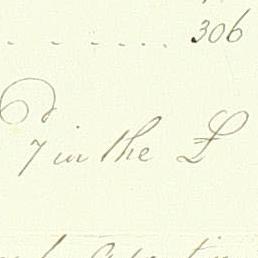 306
d
7 in the £